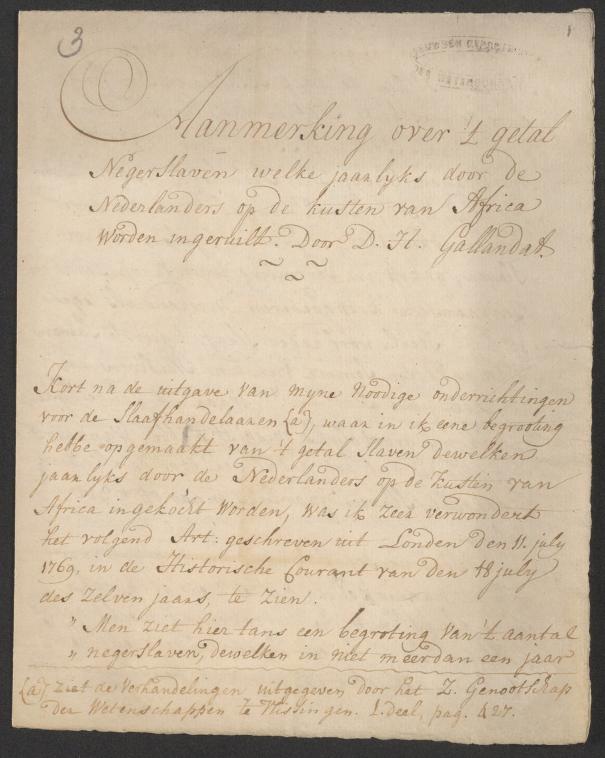 3
1
Aanmerking over 't getal
Negerslaven welke jaarlyks door de
Nederlanders op de kusten van Africa
worden ingeruilt. Door D. H. Gallandat.
Kort na de uitgave van myne Noodige onderrichtingen
voor de Slaafhandelaaren (a), waar in ik eene begrooting
hebbe opgemaakt van 't getal Slaven dewelken
jaarlyks door de Nederlanders op de Kusten van
Africa ingekocht worden, was ik zeer verwondert
het volgend Art: geschreven uit Londen den 11. july
1769, in de Historische Courant van den 18 july
des zelven jaars, te zien.
" Men ziet hier tans een begroting van 't aantal
" negerslaven, dewelken in niet meer dan een jaar
(a) ziet de Verhandelingen uitgegeven door het Z. Genootschap
der Wetenschappen te Vlissingen. I. deel, pag. 427.